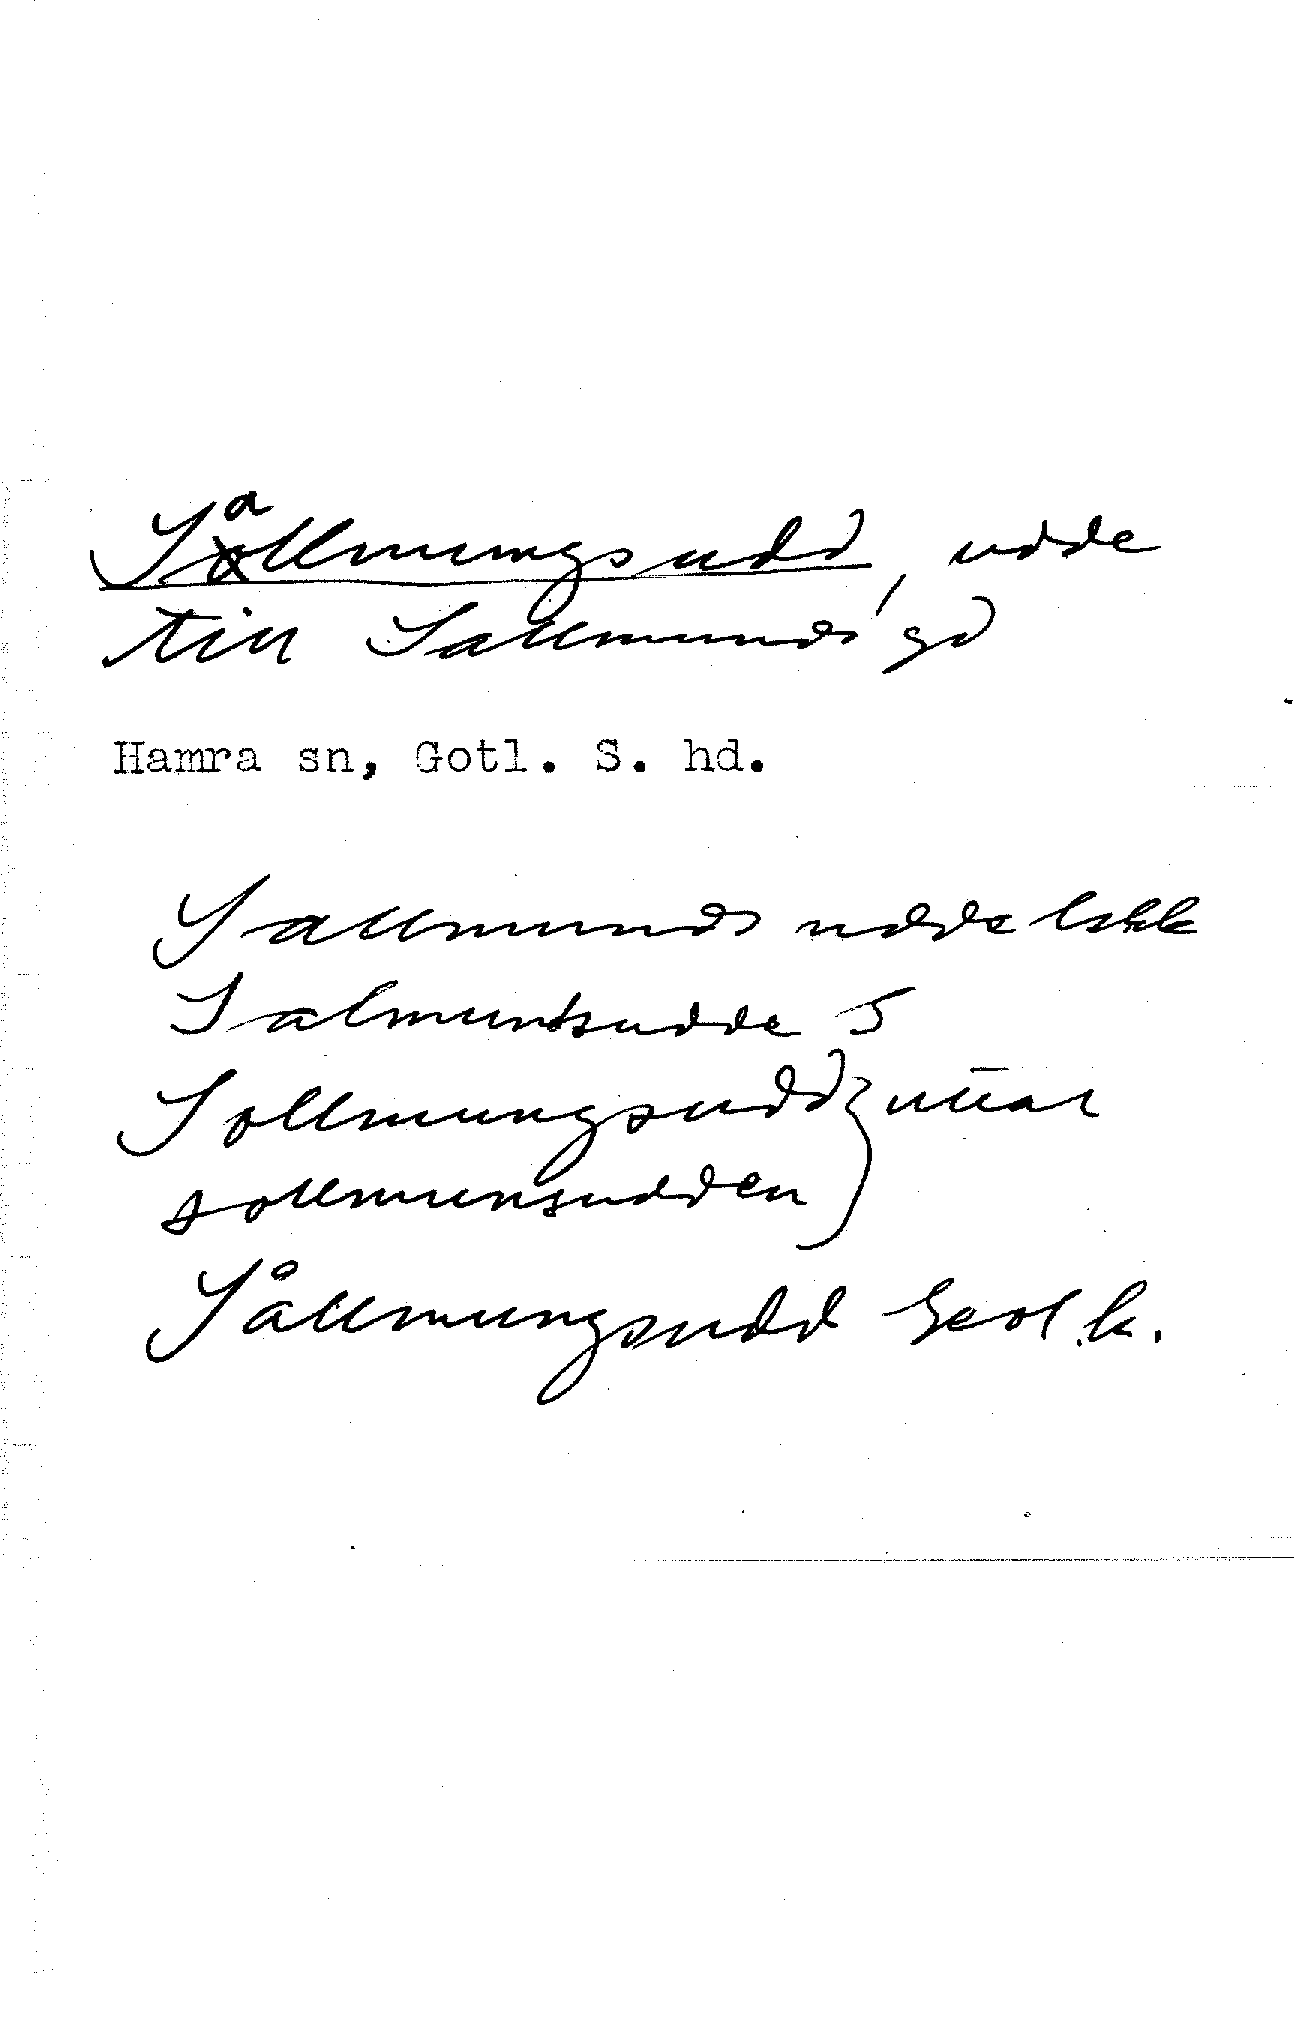 Sallmungsudd, udde
till Sallmunds gd
Hamra sn, Gotl. S. hd.
Sallmunds udde
Salmuntsudde 5
Sollmungsudd
sollmunsudden
Sållmungsudd Geol. k.